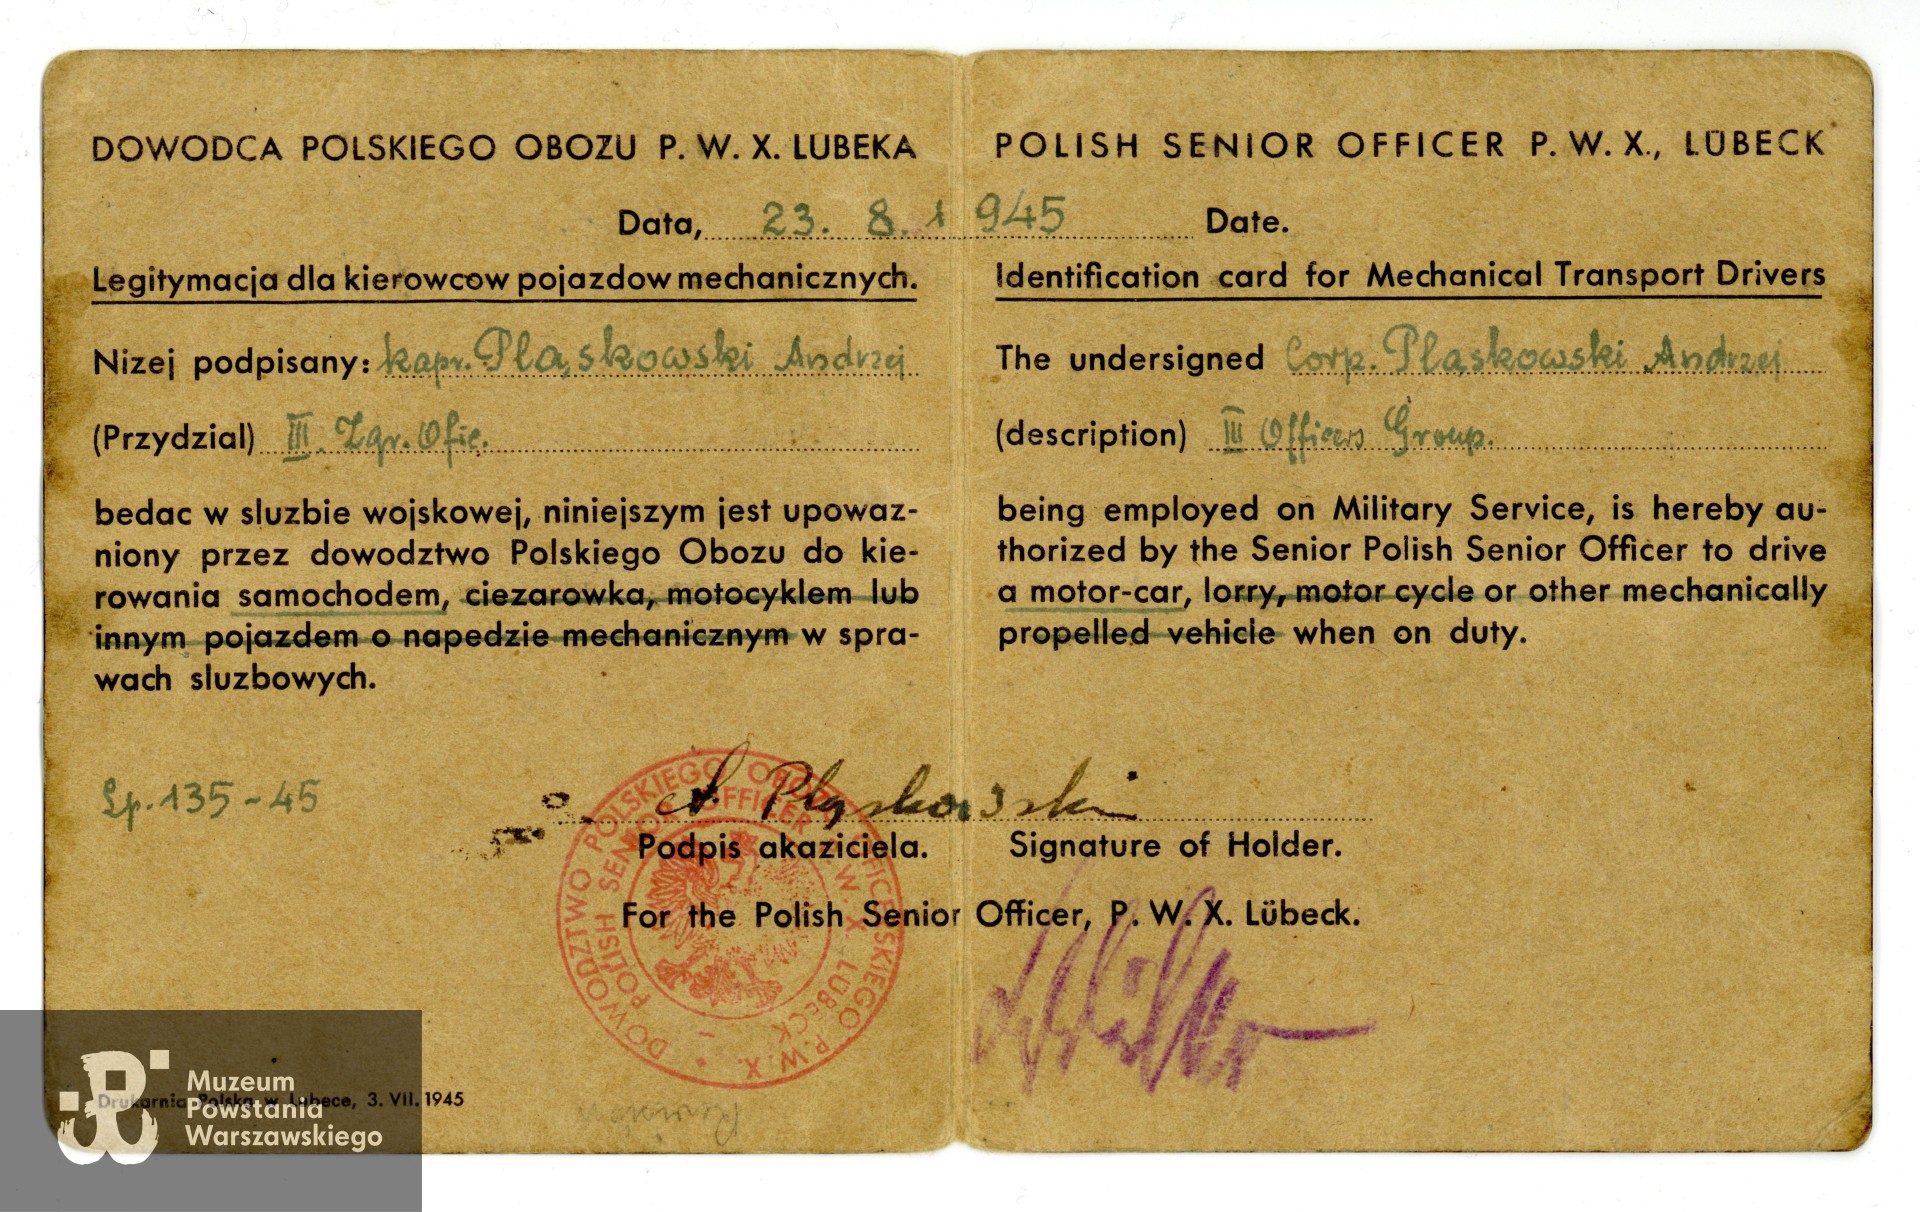 DOWODCA POLSKIEGO OBOZU P. W. X. LUBEKA
Data, 23. 8. 1
Legitymacja dla kierowcow pojazdow mechanicznych.
Nizej podpisany: kapr. Pląskowski Andrzej
(Przydzial) III. Zgr. Ofic.
bedac w sluzbie wojskowej, niniejszym jest upowaz-
niony przez dowodztwo Polskiego Obozu do kie-
rowania samochodem, ciezarowka, motocyklem lub
innym pojazdem o napedzie mechanicznym w spra-
wach sluzbowych.
Lp. 135-45
POLISH SENIOR OFFICER P. W. X., LÜBECK
945 Date.
Identification card for Mechanical Transport Drivers
The undersigned Corp. Pląskowski Andrzej
(description) III Officers Group.
being employed on Military Service, is hereby au-
thorized by the Senior Polish Senior Officer to drive
a motor-car, lorry, motor cycle or other mechanically
propelled vehicle when on duty.
A. Pląskowski
Podpis akaziciela. Signature of Holder.
For the Polish Senior Officer, P. W. X. Lübeck.
DOWODZTWO POLSKIEGO OBOZU OFICERSKIEGO P.W.X.
POLISH SENIOR OFFICER P.W.X. LUBECK
Drukarnia Polska w Lubece, 3. VII. 1945
Muzeum
Powstania
Warszawskiego